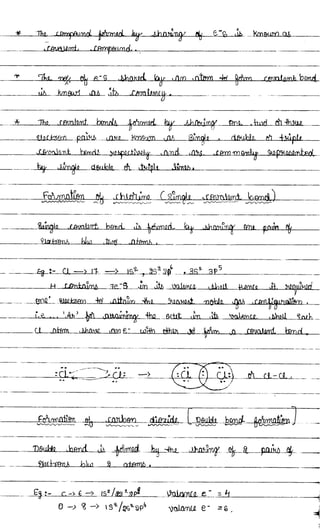 * The compound formed by sharing of e⁻s is known as
covalent compound.
* The no. of e⁻s shared by an atom to form covalent bond
is known as its covalency.
* The covalent bonds formed by sharing one, two or three
electron pairs are known as single, double or triple
covalent bonds respectively and are commonly represented
by single double or triple lines.
Formation of chlorine (Single covalent bond)
Single covalent bond is formed by sharing one pair of
electrons b/w two atoms.
Eg :- Cl → 17 → 1s², 2s² 2p⁶, 3s² 3p⁵
It contains 7e⁻s in its valence shell Hence it required
one electron to attain the nearest noble gas configuration.
i.e., 'Ar' for attaining the octet in its valence shell each
Cl atom share one e⁻ with other to form a covalent bond.
:Cl· ·Cl: → :Cl : Cl: or Cl-Cl.
Formation of carbon dioxide [Double bond formation]
Double bond is formed by the sharing of 2 pairs of
electrons b/w 2 atoms.
Eg :- C → 6 → 1s²/2s² 2p² valance e⁻ = 4
O → 8 → 1s²/2s² 2p⁴ valance e⁻ = 6.